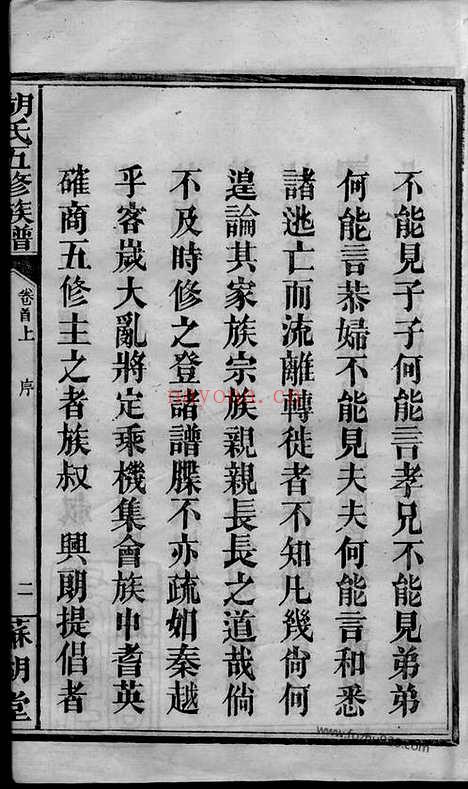 不能見子子何能言孝兄不能見弟弟
何能言恭婦不能見夫夫何能言和悉
諸逃亡而流離轉徙者不知凡幾尙何
遑論其家族宗族親親長長之道哉倘
不及時修之登諸譜牒不亦疏如秦越
乎客嵗大亂將定乘機集會族中耆英
確商五修主之者族叔 興朗提倡者
胡氏五修族譜 卷首上 序 二 蘇湖堂
nayona.cn